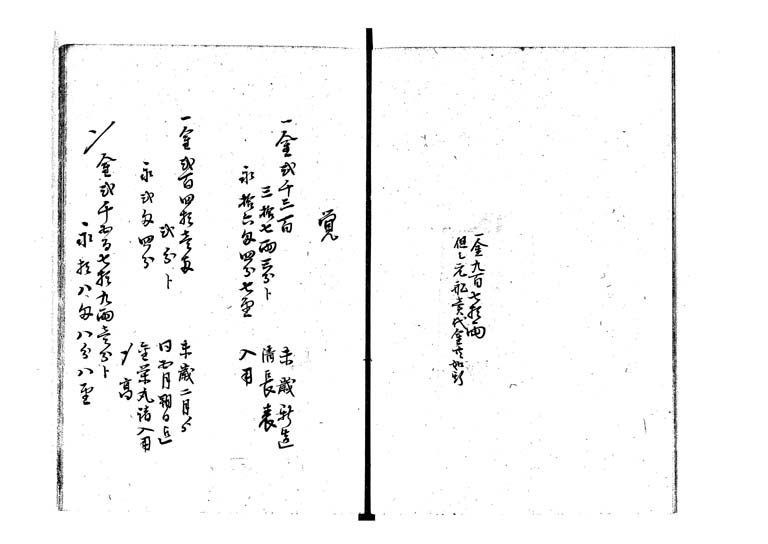 一金九百七拾両
但シ元船売代金
覚
一金弐千三百
三拾七両三分ト
永拾六匁四分七厘
未歳新造
清長表
入用
一金弐百四拾壱両
弐分ト
永弐匁四分
未歳二月ゟ
同四月朔日迄
金栄丸諸入用
〆高
〆金弐千五百七拾九両壱分ト
永拾八匁八分八厘